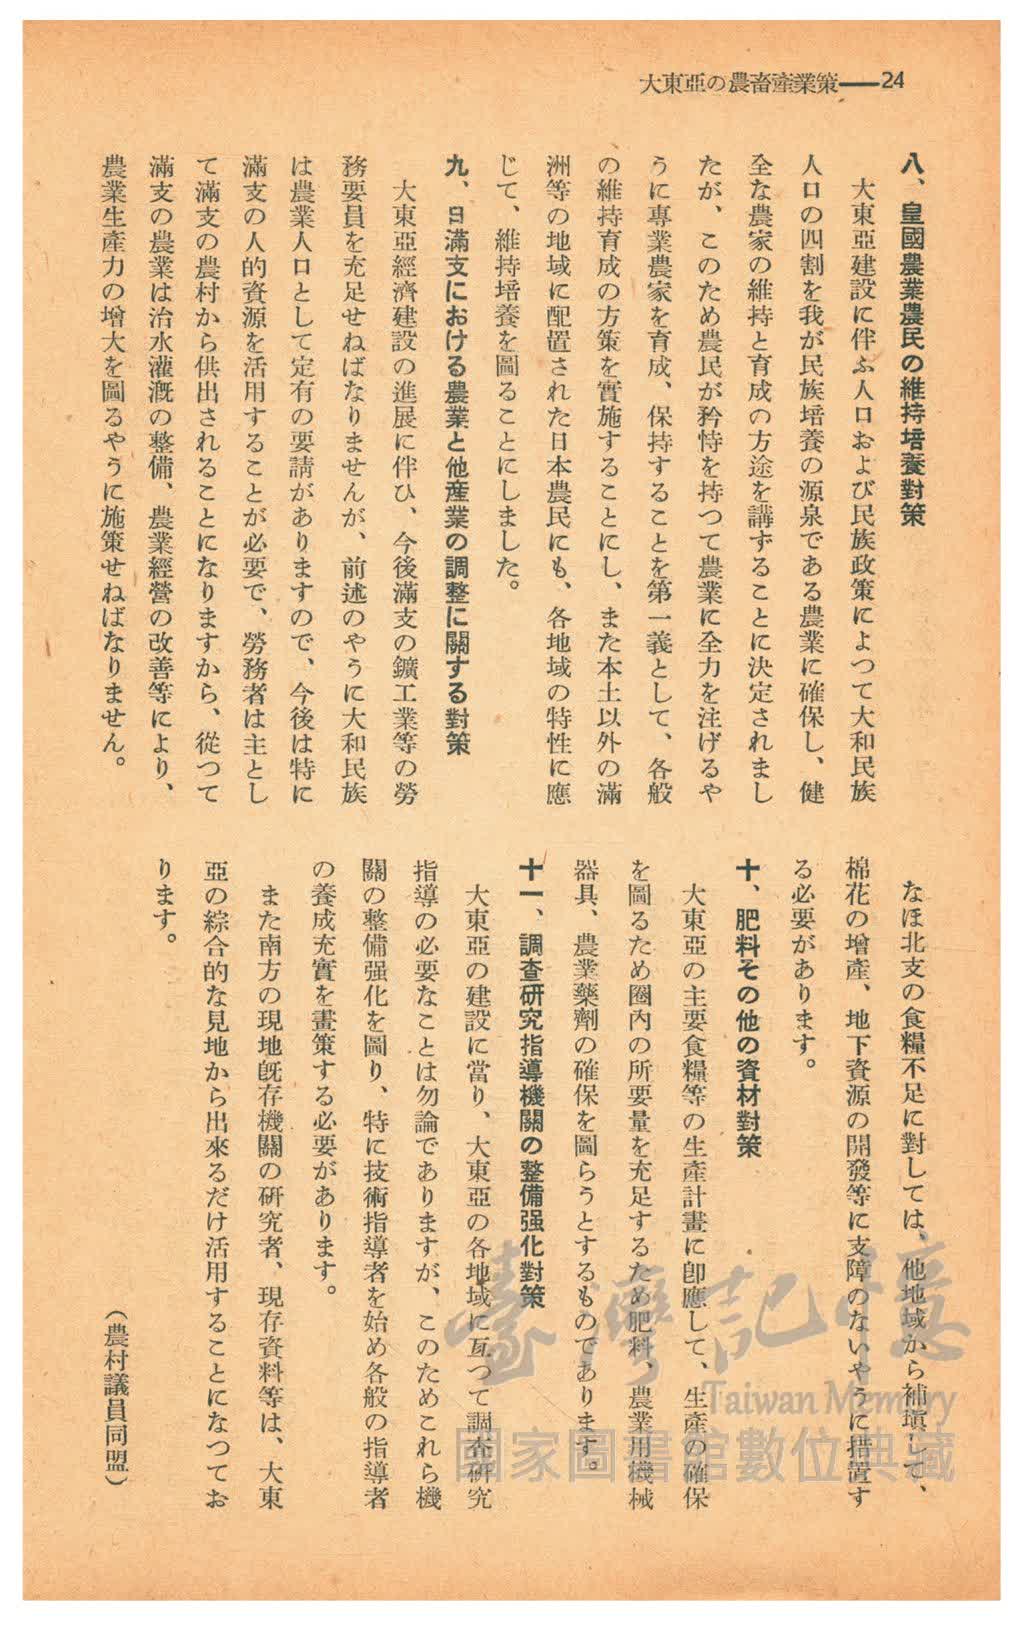 大東亞の農畜產業策——24
八、皇國農業農民の維持培養對策
大東亞建設に伴ふ人口および民族政策によつて大和民族
人口の四割を我が民族培養の源泉である農業に確保し、健
全な農家の維持と育成の方途を講ずることに決定されまし
たが、このため農民が矜恃を持つて農業に全力を注げるや
うに專業農家を育成、保持することを第一義として、各般
の維持育成の方策を實施することにし、また本土以外の滿
洲等の地域に配置された日本農民にも、各地域の特性に應
じて、維持培養を圖ることにしました。
九、日滿支における農業と他産業の調整に關する對策
大東亞經濟建設の進展に伴ひ、今後滿支の鑛工業等の勞
務要員を充足せねばなりませんが、前述のやうに大和民族
は農業人口として定有の要請がありますので、今後は特に
滿支の人的資源を活用することが必要で、勞務者は主とし
て滿支の農村から供出されることになりますから、從つて
滿支の農業は治水灌漑の整備、農業經營の改善等により、
農業生產力の增大を圖るやうに施策せねばなりません。
なほ北支の食糧不足に對しては、他地域から補塡して、
棉花の增產、地下資源の開發等に支障のないやうに措置す
る必要があります。
十、肥料その他の資材對策
大東亞の主要食糧等の生產計畫に卽應して、生產の確保
を圖るため圈內の所要量を充足するため肥料、農業用機械
器具、農業藥劑の確保を圖らうとするものであります。
十一、調査研究指導機關の整備强化對策
大東亞の建設に當り、大東亞の各地域に亙つて調査硏究
指導の必要なことは勿論でありますが、このためこれら機
關の整備强化を圖り、特に技術指導者を始め各般の指導者
の養成充實を畫策する必要があります。
また南方の現地旣存機關の硏究者、現存資料等は、大東
亞の綜合的な見地から出來るだけ活用することになつてお
ります。
（農村議員同盟）
臺灣記憶
Taiwan Memory
國家圖書館數位典藏